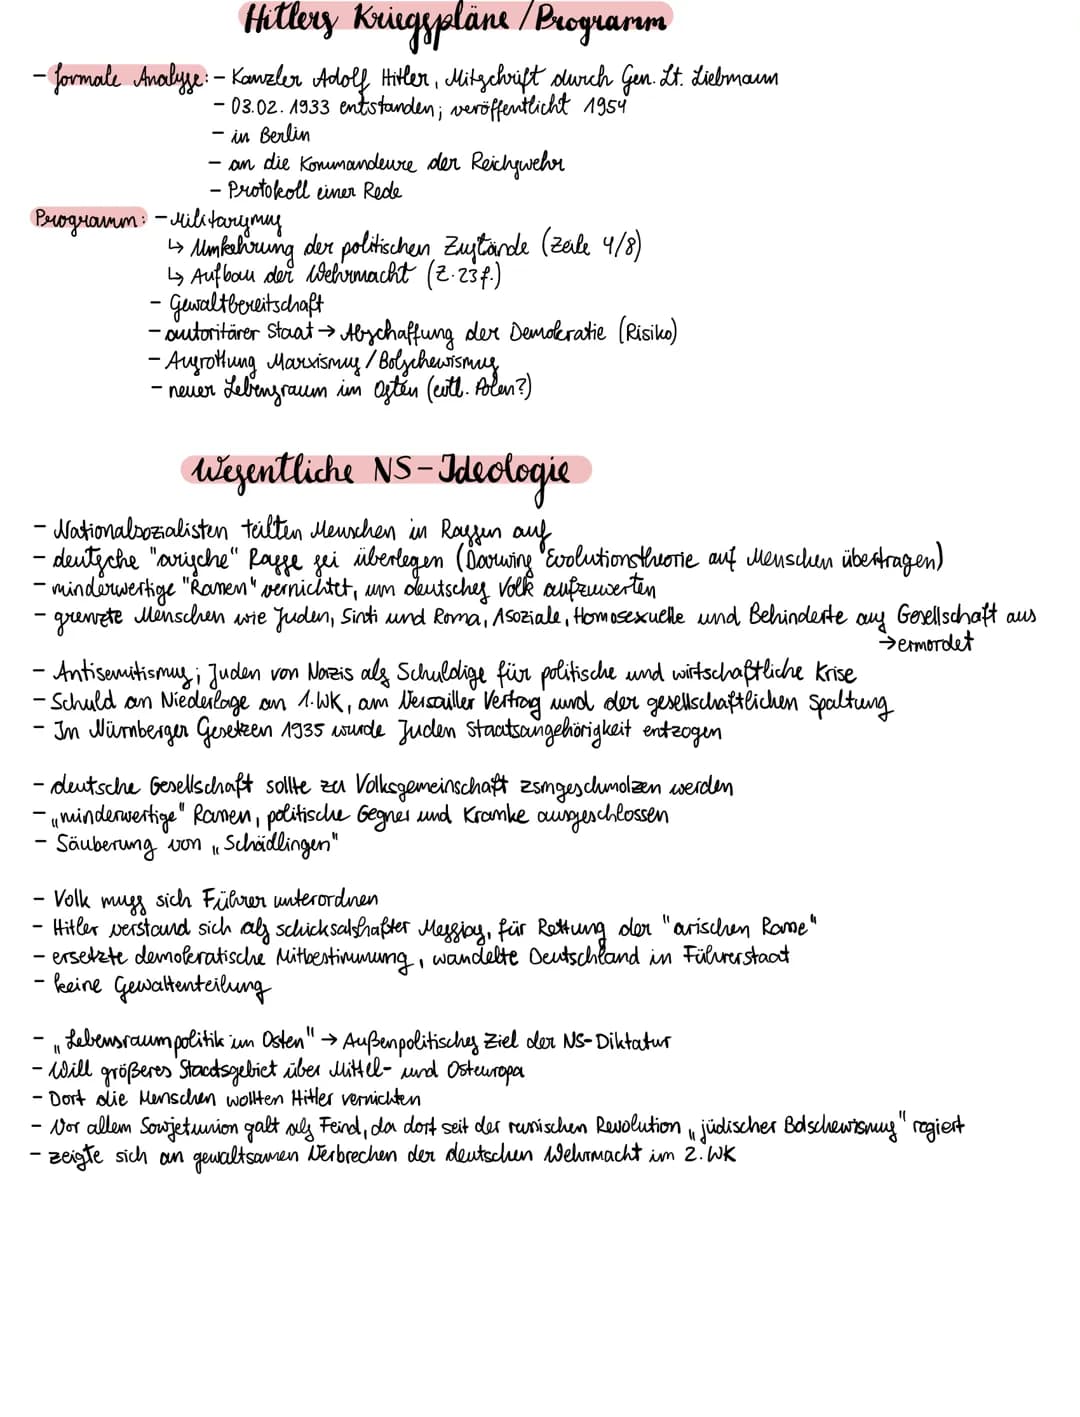 Hitlers Kriegspläne / Programm
- formale Analyse: - Kanzler Adolf Hitler, Mitschrift durch Gen. Lt. Liebmann
- 03.02.1933 entstanden; veröffentlicht 1954
- in Berlin
- an die Kommandeure der Reichswehr
- Protokoll einer Rede
Programm: - Militarismus
↳ Umkehrung der politischen Zustände (Zeile 4/8)
↳ Aufbau der Wehrmacht (Z. 23f.)
- Gewaltbereitschaft
- autoritärer Staat → Abschaffung der Demokratie (Risiko)
- Ausrottung Marxismus / Bolschewismus
- neuer Lebensraum im Osten (evtl. Polen?)
Wesentliche NS-Ideologie
- Nationalsozialisten teilten Menschen in Rassen auf
- deutsche "arische" Rasse sei überlegen (Darwins Evolutionstheorie auf Menschen übertragen)
- minderwertige "Rassen" vernichtet, um deutsches Volk aufzuwerten
- grenzte Menschen wie Juden, Sinti und Roma, Asoziale, Homosexuelle und Behinderte aus Gesellschaft aus
→ ermordet
- Antisemitismus; Juden von Nazis als Schuldige für politische und wirtschaftliche Krise
- Schuld an Niederlage an 1.WK, am Versailler Vertrag und der gesellschaftlichen Spaltung
- In Nürnberger Gesetzen 1935 wurde Juden Staatsangehörigkeit entzogen
- deutsche Gesellschaft sollte zu Volksgemeinschaft zsmgeschmolzen werden
- „minderwertige" Rassen, politische Gegner und Kranke ausgeschlossen
- Säuberung von „Schädlingen"
- Volk muss sich Führer unterordnen
- Hitler verstand sich als schicksalshafter Messias, für Rettung der "arischen Rasse"
- ersetzte demokratische Mitbestimmung, wandelte Deutschland in Führerstaat
- keine Gewaltenteilung
- „Lebensraumpolitik im Osten" → Außenpolitisches Ziel der NS-Diktatur
- Will größeres Staatsgebiet über Mittel- und Osteuropa
- Dort die Menschen wollten Hitler vernichten
- Vor allem Sowjetunion galt als Feind, da dort seit der russischen Revolution „jüdischer Bolschewismus" regiert
- zeigte sich an gewaltsamen Verbrechen der deutschen Wehrmacht im 2.WK